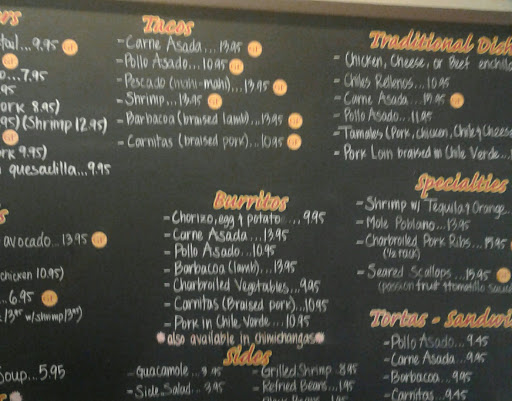 tail...9.95 GF
...7.95
ork 8.95)
95)(Shrimp 12.95)
ork 9.95)
quesadilla...9.95
avocado...13.95 GF
chicken 10.95)
...6.95 GF
w/shrimp
Soup...5.95
Tacos
- Carne Asada...13.95 GF
- Pollo Asado...10.95 GF
- Pescado (mahi-mahi)...13.95 GF
- Shrimp...13.95 GF
- Barbacoa (braised lamb)...13.95 GF
- Carnitas (braised pork)...10.95 GF
Burritos
- Chorizo, egg & potato...9.95
- Carne Asada...13.95
- Pollo Asado...10.95
- Barbacoa (lamb)...13.95
- Charbroiled Vegetables...9.95
- Carnitas (Braised pork)...10.95
- Pork in Chile Verde...10.95
also available in chimichangas
Sides
- Guacamole...
- Side Salad...3.95
- Grilled Shrimp 8.95
- Refried Beans...1.95
Beans
Traditional Dish
- Chicken, Cheese, or Beef enchil
- Chiles Rellenos...10.95
- Carne Asada...15.95 GF
- Pollo Asado...11.95
- Tamales (Pork, chicken, Chile & Cheese
- Pork Loin braised in Chile Verde...
Specialties
- Shrimp w/ Tequila & Orange
- Mole Poblano...13.95
- Charbroiled Pork Ribs...15.95
(1/2 rack)
- Seared Scallops...15.95 GF
(passion fruit & tomatillo sauce
Tortas - Sandwi
- Pollo Asado...9.45
- Carne Asada...9.95
- Barbacoa...9.95
- Carnitas...9.45